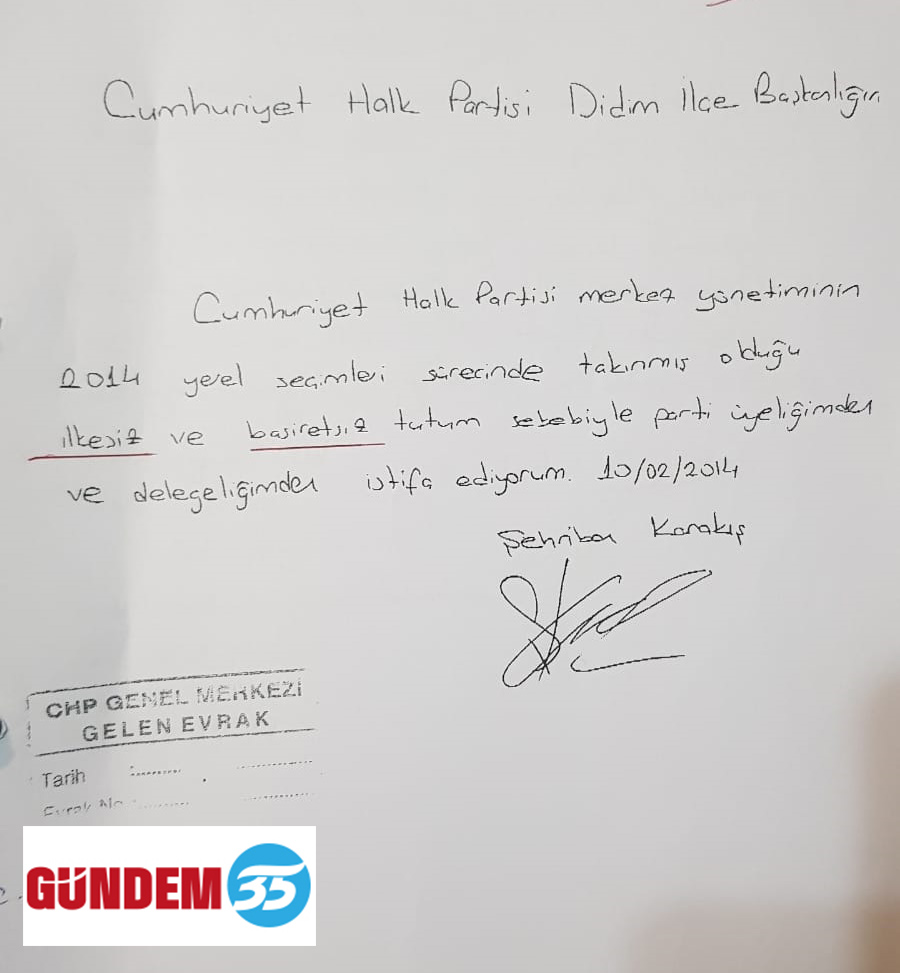 Cumhuriyet Halk Partisi Didim İlçe Başkanlığın
Cumhuriyet Halk Partisi merkez yönetiminin
2014 yerel seçimleri sürecinde takınmış olduğu
ilkesiz ve basiretsiz tutum sebebiyle parti üyeliğimden
ve delegeliğimden istifa ediyorum. 10/02/2014
Şehriban Karakış
CHP GENEL MERKEZİ
GELEN EVRAK
Tarih :
Evrak No :
GÜNDEM 35